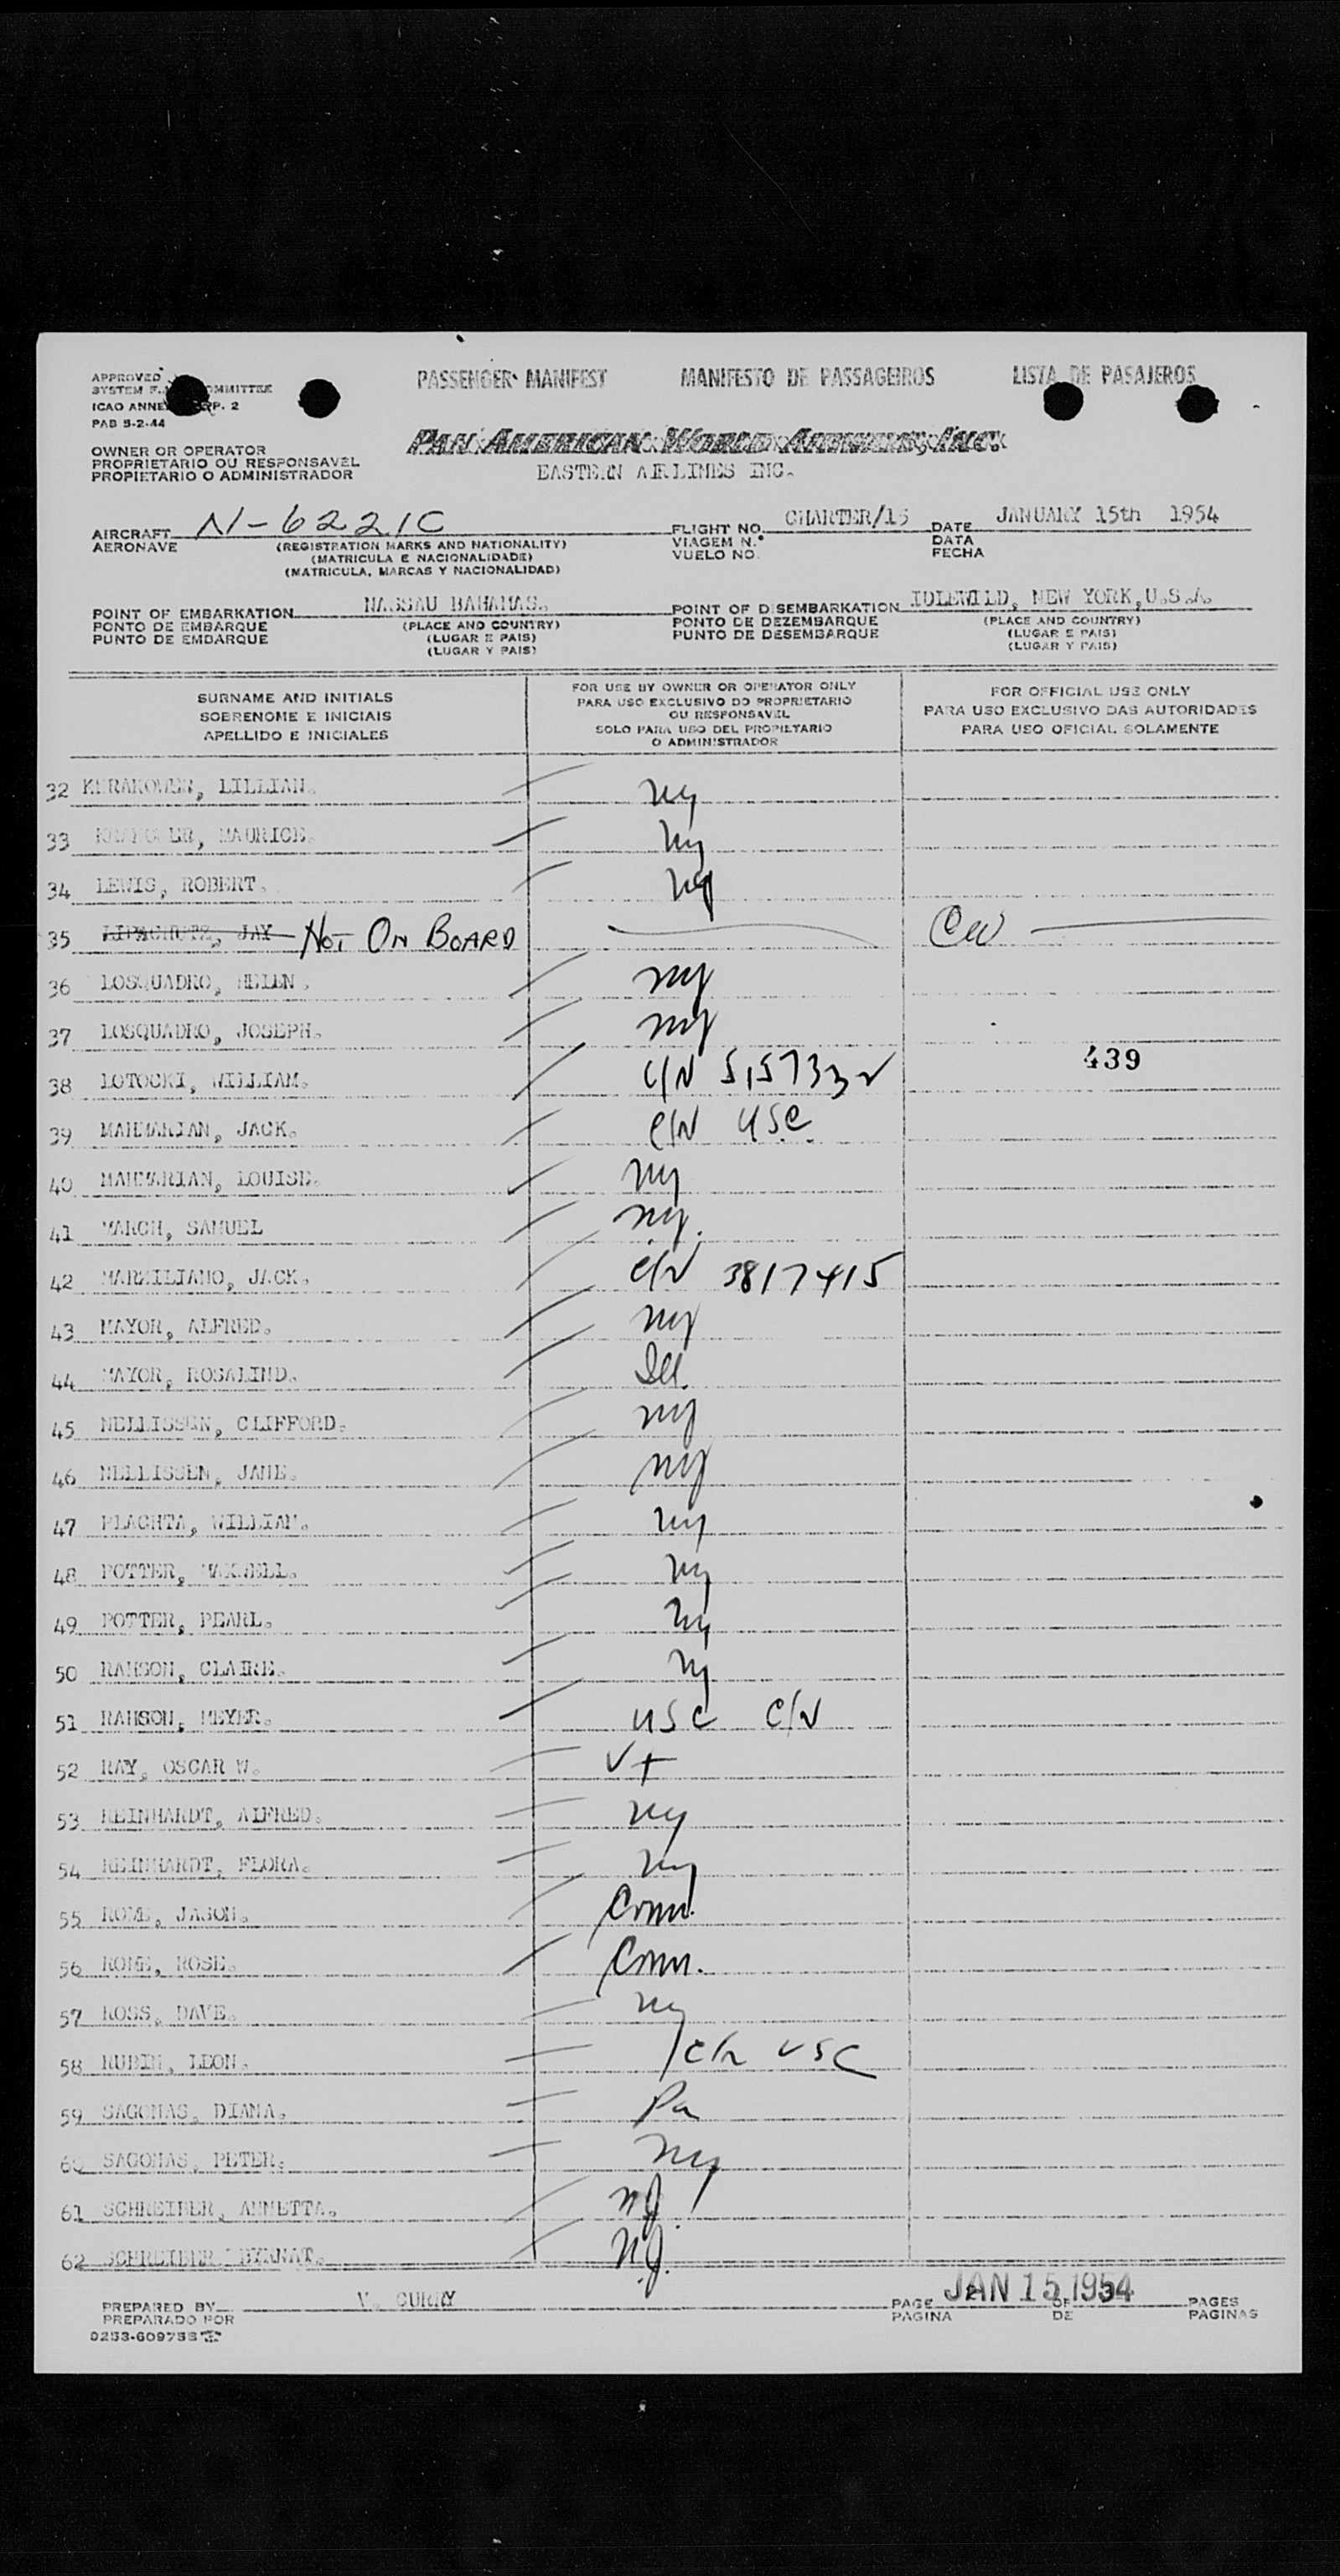 APPROVED
SYSTEM F. COMMITTEE
ICAO ANNEX APP. 2
PAB 5-2-44
PASSENGER MANIFEST MANIFESTO DE PASSAGEIROS LISTA DE PASAJEROS
OWNER OR OPERATOR
PROPRIETARIO OU RESPONSAVEL
PROPIETARIO O ADMINISTRADOR
PAN AMERICAN WORLD AIRWAYS, INC.
EASTERN AIRLINES INC.
AIRCRAFT N-6221C FLIGHT NO. CHARTER/15 DATE JANUARY 15th 1954
AERONAVE (REGISTRATION MARKS AND NATIONALITY) VIAGEM N.° DATA
(MATRICULA E NACIONALIDADE) VUELO NO. FECHA
(MATRICULA, MARCAS Y NACIONALIDAD)
POINT OF EMBARKATION NASSAU BAHAMAS. POINT OF DISEMBARKATION IDLEWILD, NEW YORK, U.S.A.
PONTO DE EMBARQUE (PLACE AND COUNTRY) PONTO DE DEZEMBARQUE (PLACE AND COUNTRY)
PUNTO DE EMBARQUE (LUGAR E PAIS) PUNTO DE DESEMBARQUE (LUGAR E PAIS)
(LUGAR Y PAIS) (LUGAR Y PAIS)
SURNAME AND INITIALS
SOBRENOME E INICIAIS
APELLIDO E INICIALES
FOR USE BY OWNER OR OPERATOR ONLY
PARA USO EXCLUSIVO DO PROPRIETARIO
OU RESPONSAVEL
SOLO PARA USO DEL PROPIETARIO
O ADMINISTRADOR
FOR OFFICIAL USE ONLY
PARA USO EXCLUSIVO DAS AUTORIDADES
PARA USO OFICIAL SOLAMENTE
32 LILLIAN. ny
33 MAURICE. ny
34 LEWIS, ROBERT. ny
35 JAY NOT ON BOARD CW
36 LOSQUADRO, HELEN. ny
37 LOSQUADRO, JOSEPH. ny
38 LOTOCKI, WILLIAM. C/N 5157332 439
39 MAHMARIAN, JACK. C/N USC
40 MAHMARIAN, LOUISE. ny
41 MARCH, SAMUEL ny.
42 MARZILIANO, JACK. C/N 3817415
43 MAYOR, ALFRED. ny
44 MAYOR, ROSALIND. Ill.
45 NELLISSEN, CLIFFORD. ny
46 NELLISSEN, JANE. ny
47 PLACHTA, WILLIAM. ny
48 POTTER, MAXWELL. ny
49 POTTER, PEARL. ny
50 RAMSON, CLAIRE. ny
51 RAMSON, MEYER. USC C/N
52 RAY, OSCAR W. Vt
53 REINHARDT, ALFRED. ny
54 REINHARDT, FLORA. ny
55 ROME, JASON. Conn.
56 ROME, ROSE. Conn.
57 ROSS, DAVE. ny
58 RUBIN, LEON. C/N USC
59 SAGONAS, DIANA. Pa
60 SAGONAS, PETER. ny
61 SCHREIBER, ANNETTA. N.J.
62 SCHREIBER N.J.
PREPARED BY V. CURRY PAGE 2 OF 3 PAGES
PREPARADO POR PAGINA DE PAGINAS
JAN 15 1954
0253-609758